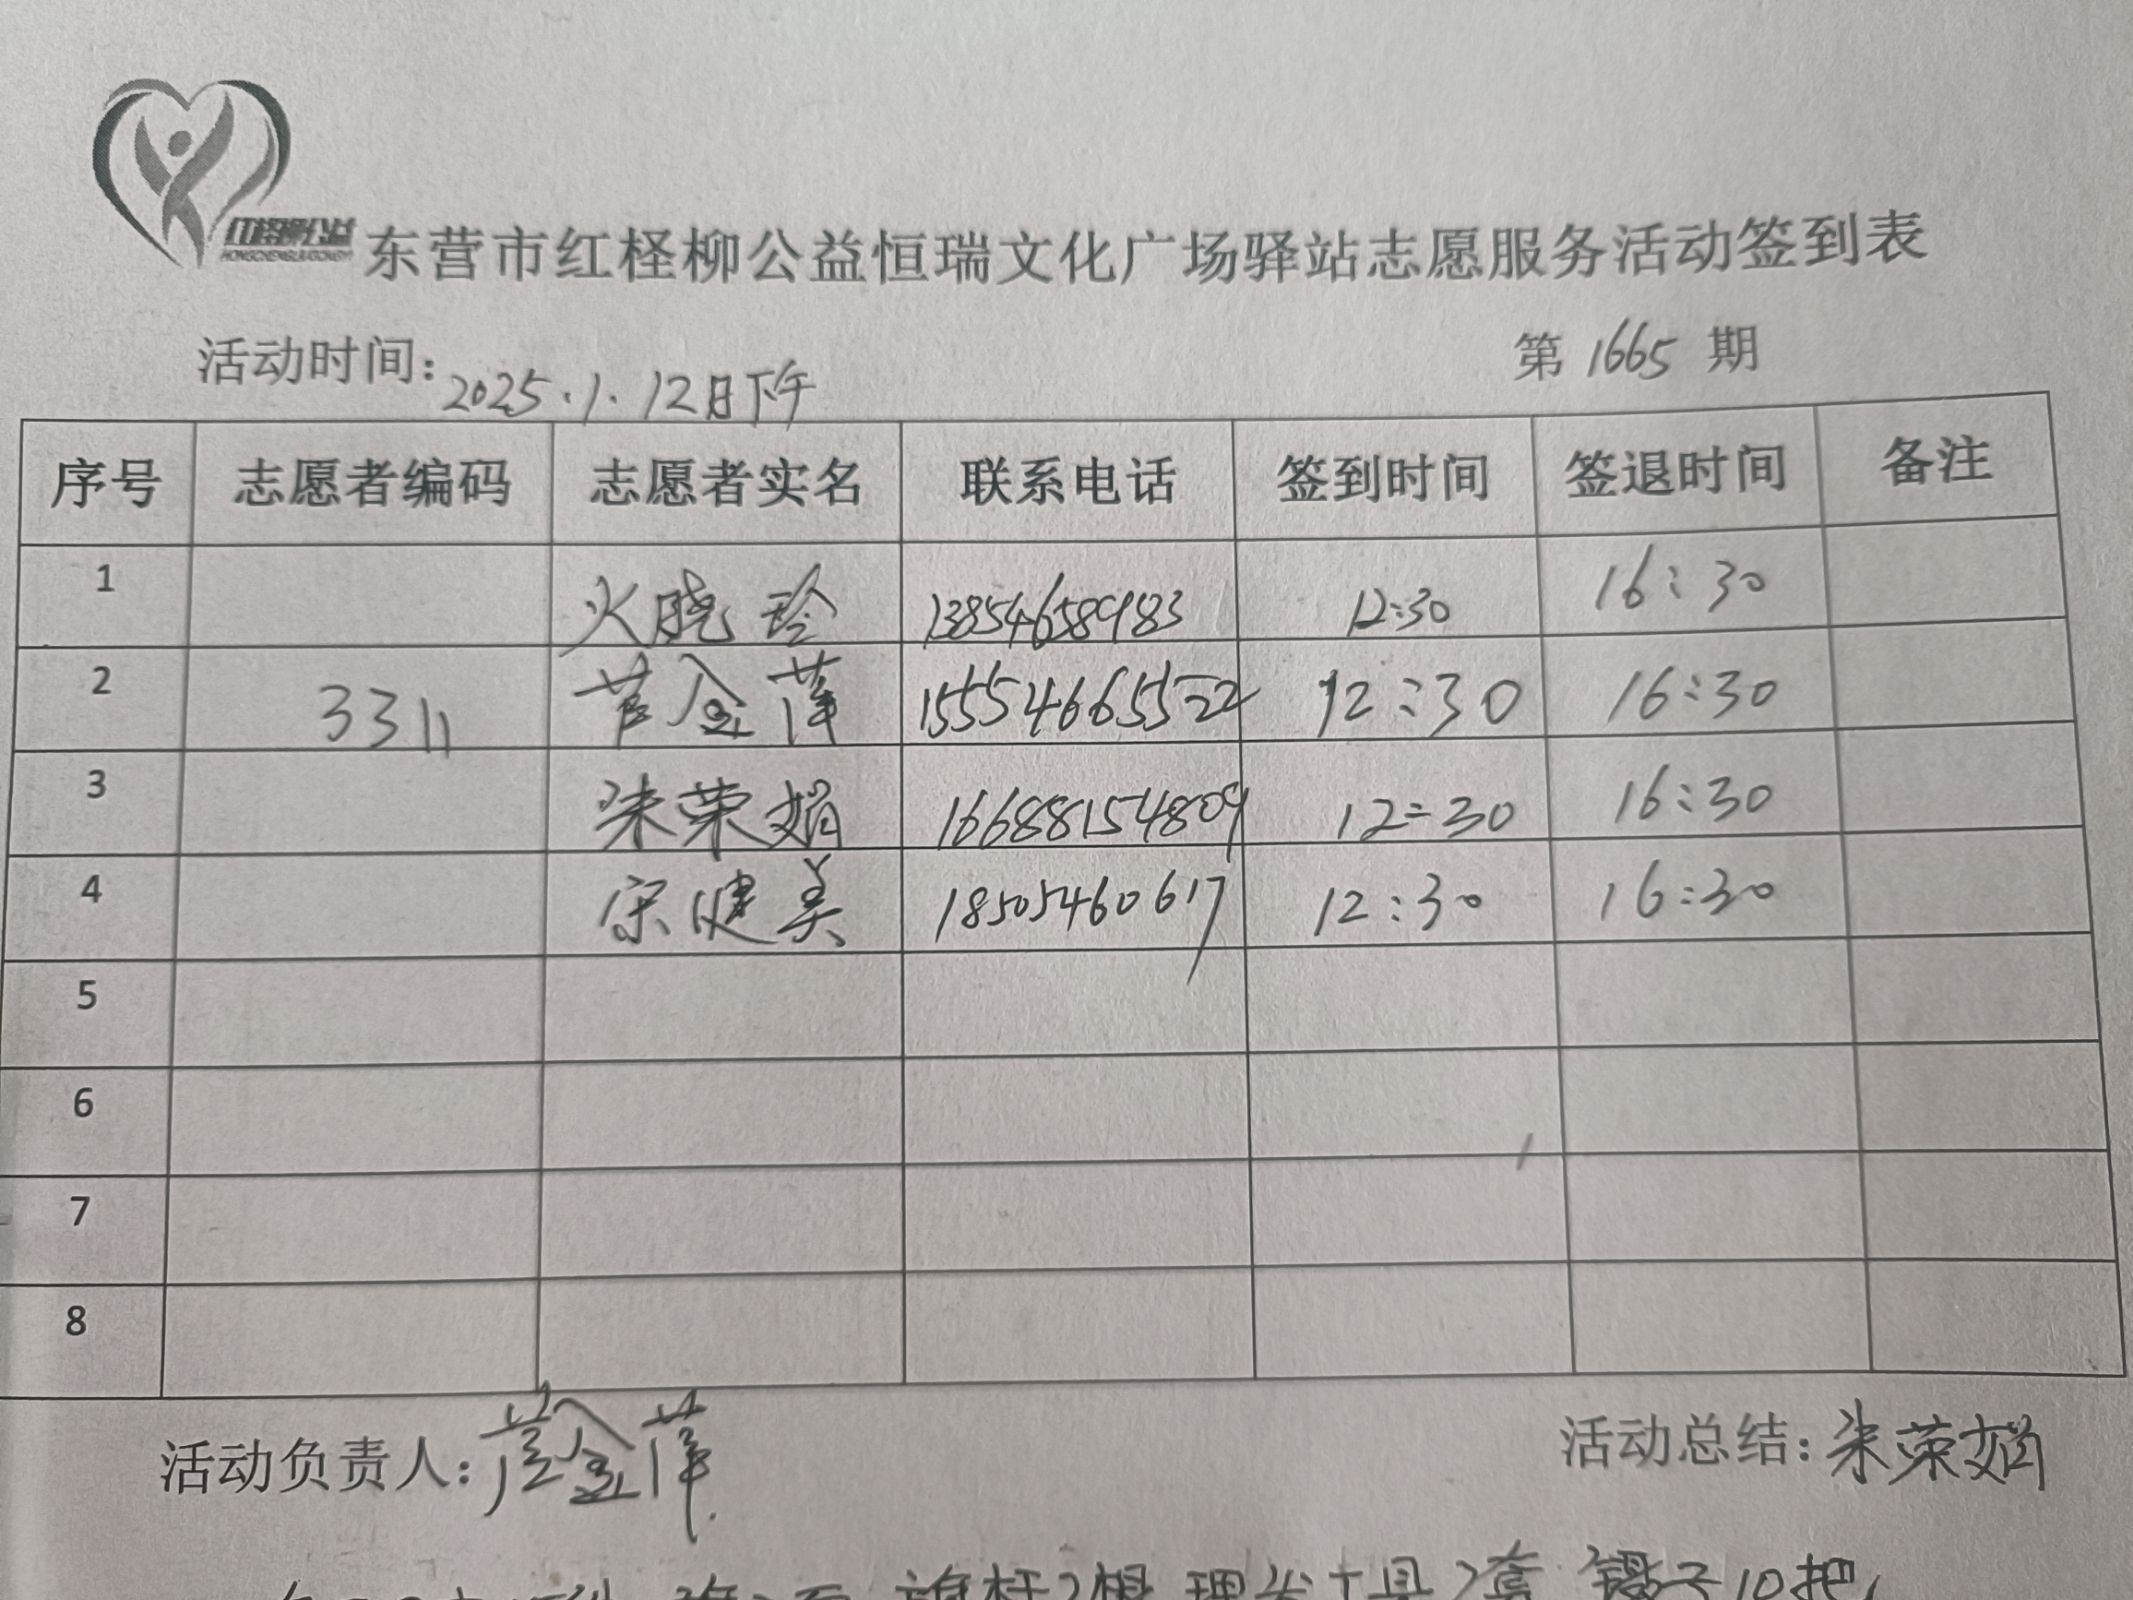 红柽柳公益
东营市红柽柳公益恒瑞文化广场驿站志愿服务活动签到表
活动时间：2025.1.12日下午 第 1665 期
序号 志愿者编码 志愿者实名 联系电话 签到时间 签退时间 备注
1 火晓玲 13854658983 12:30 16:30
2 3311 金萍 15554665522 12:30 16:30
3 朱荣娟 16688154809 12:30 16:30
4 宋健美 18505460617 12:30 16:30
5
6
7
8
活动负责人：金萍 活动总结：朱荣娟
旗杆2根 理发工具2套 镊子10把